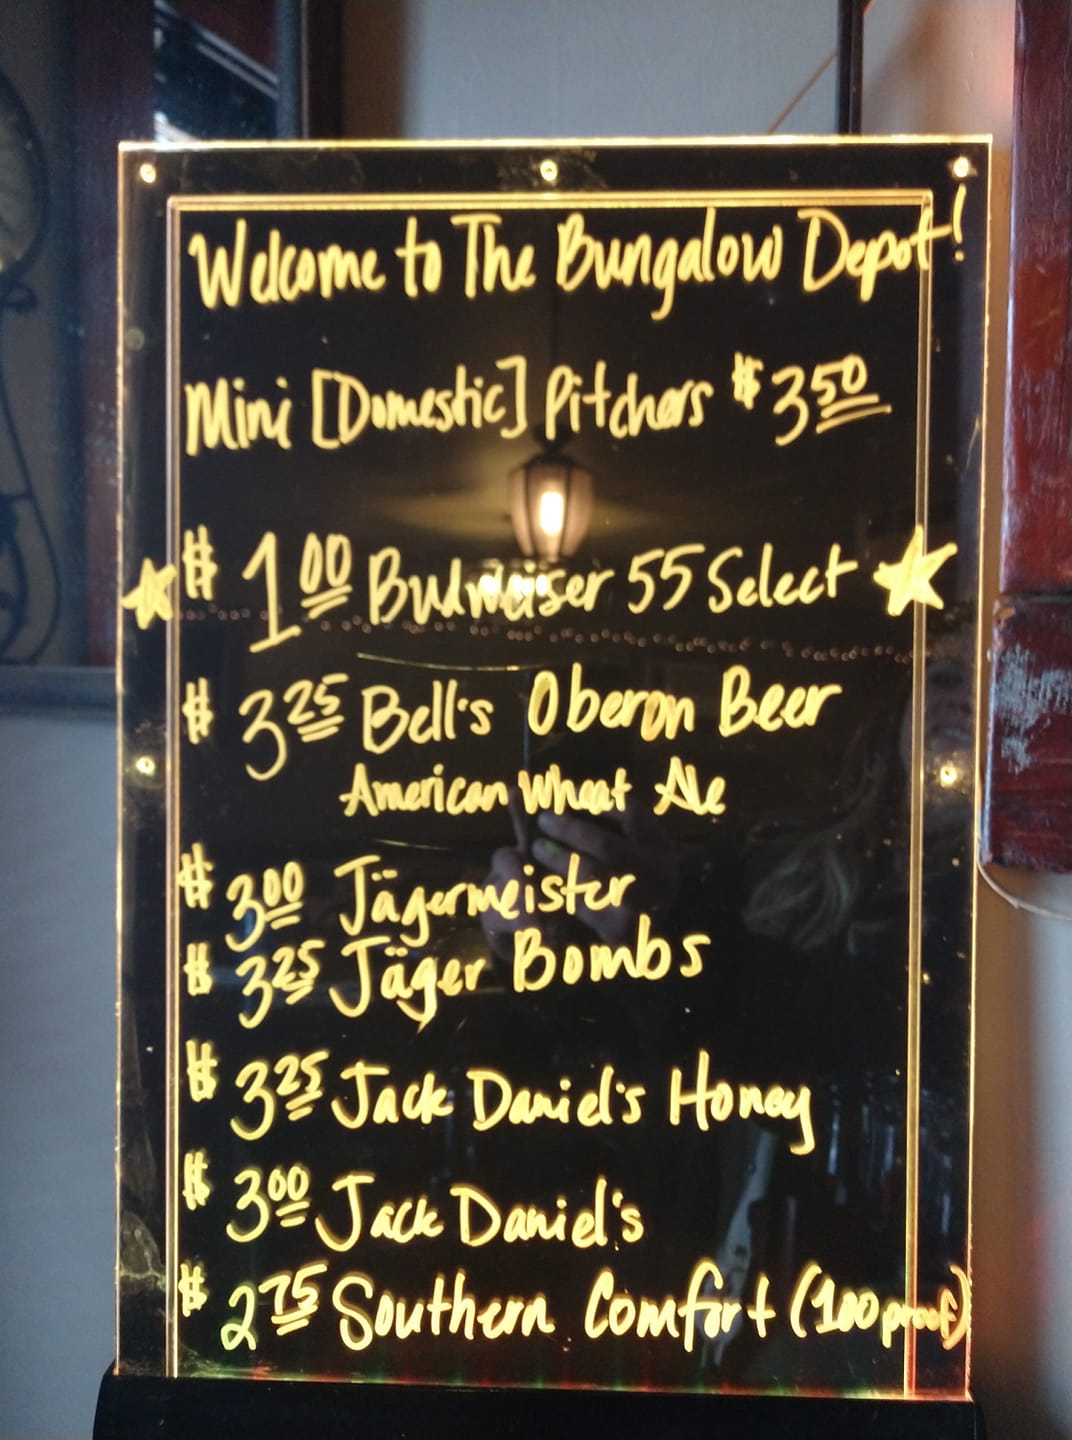 Welcome to The Bungalow Depot!
Mini [Domestic] Pitchers $3.50
$1.00 Budweiser 55 Select
$3.25 Bell's Oberon Beer
American Wheat Ale
$3.00 Jägermeister
$3.25 Jäger Bombs
$3.25 Jack Daniel's Honey
$3.00 Jack Daniel's
$2.75 Southern Comfort (100 proof)